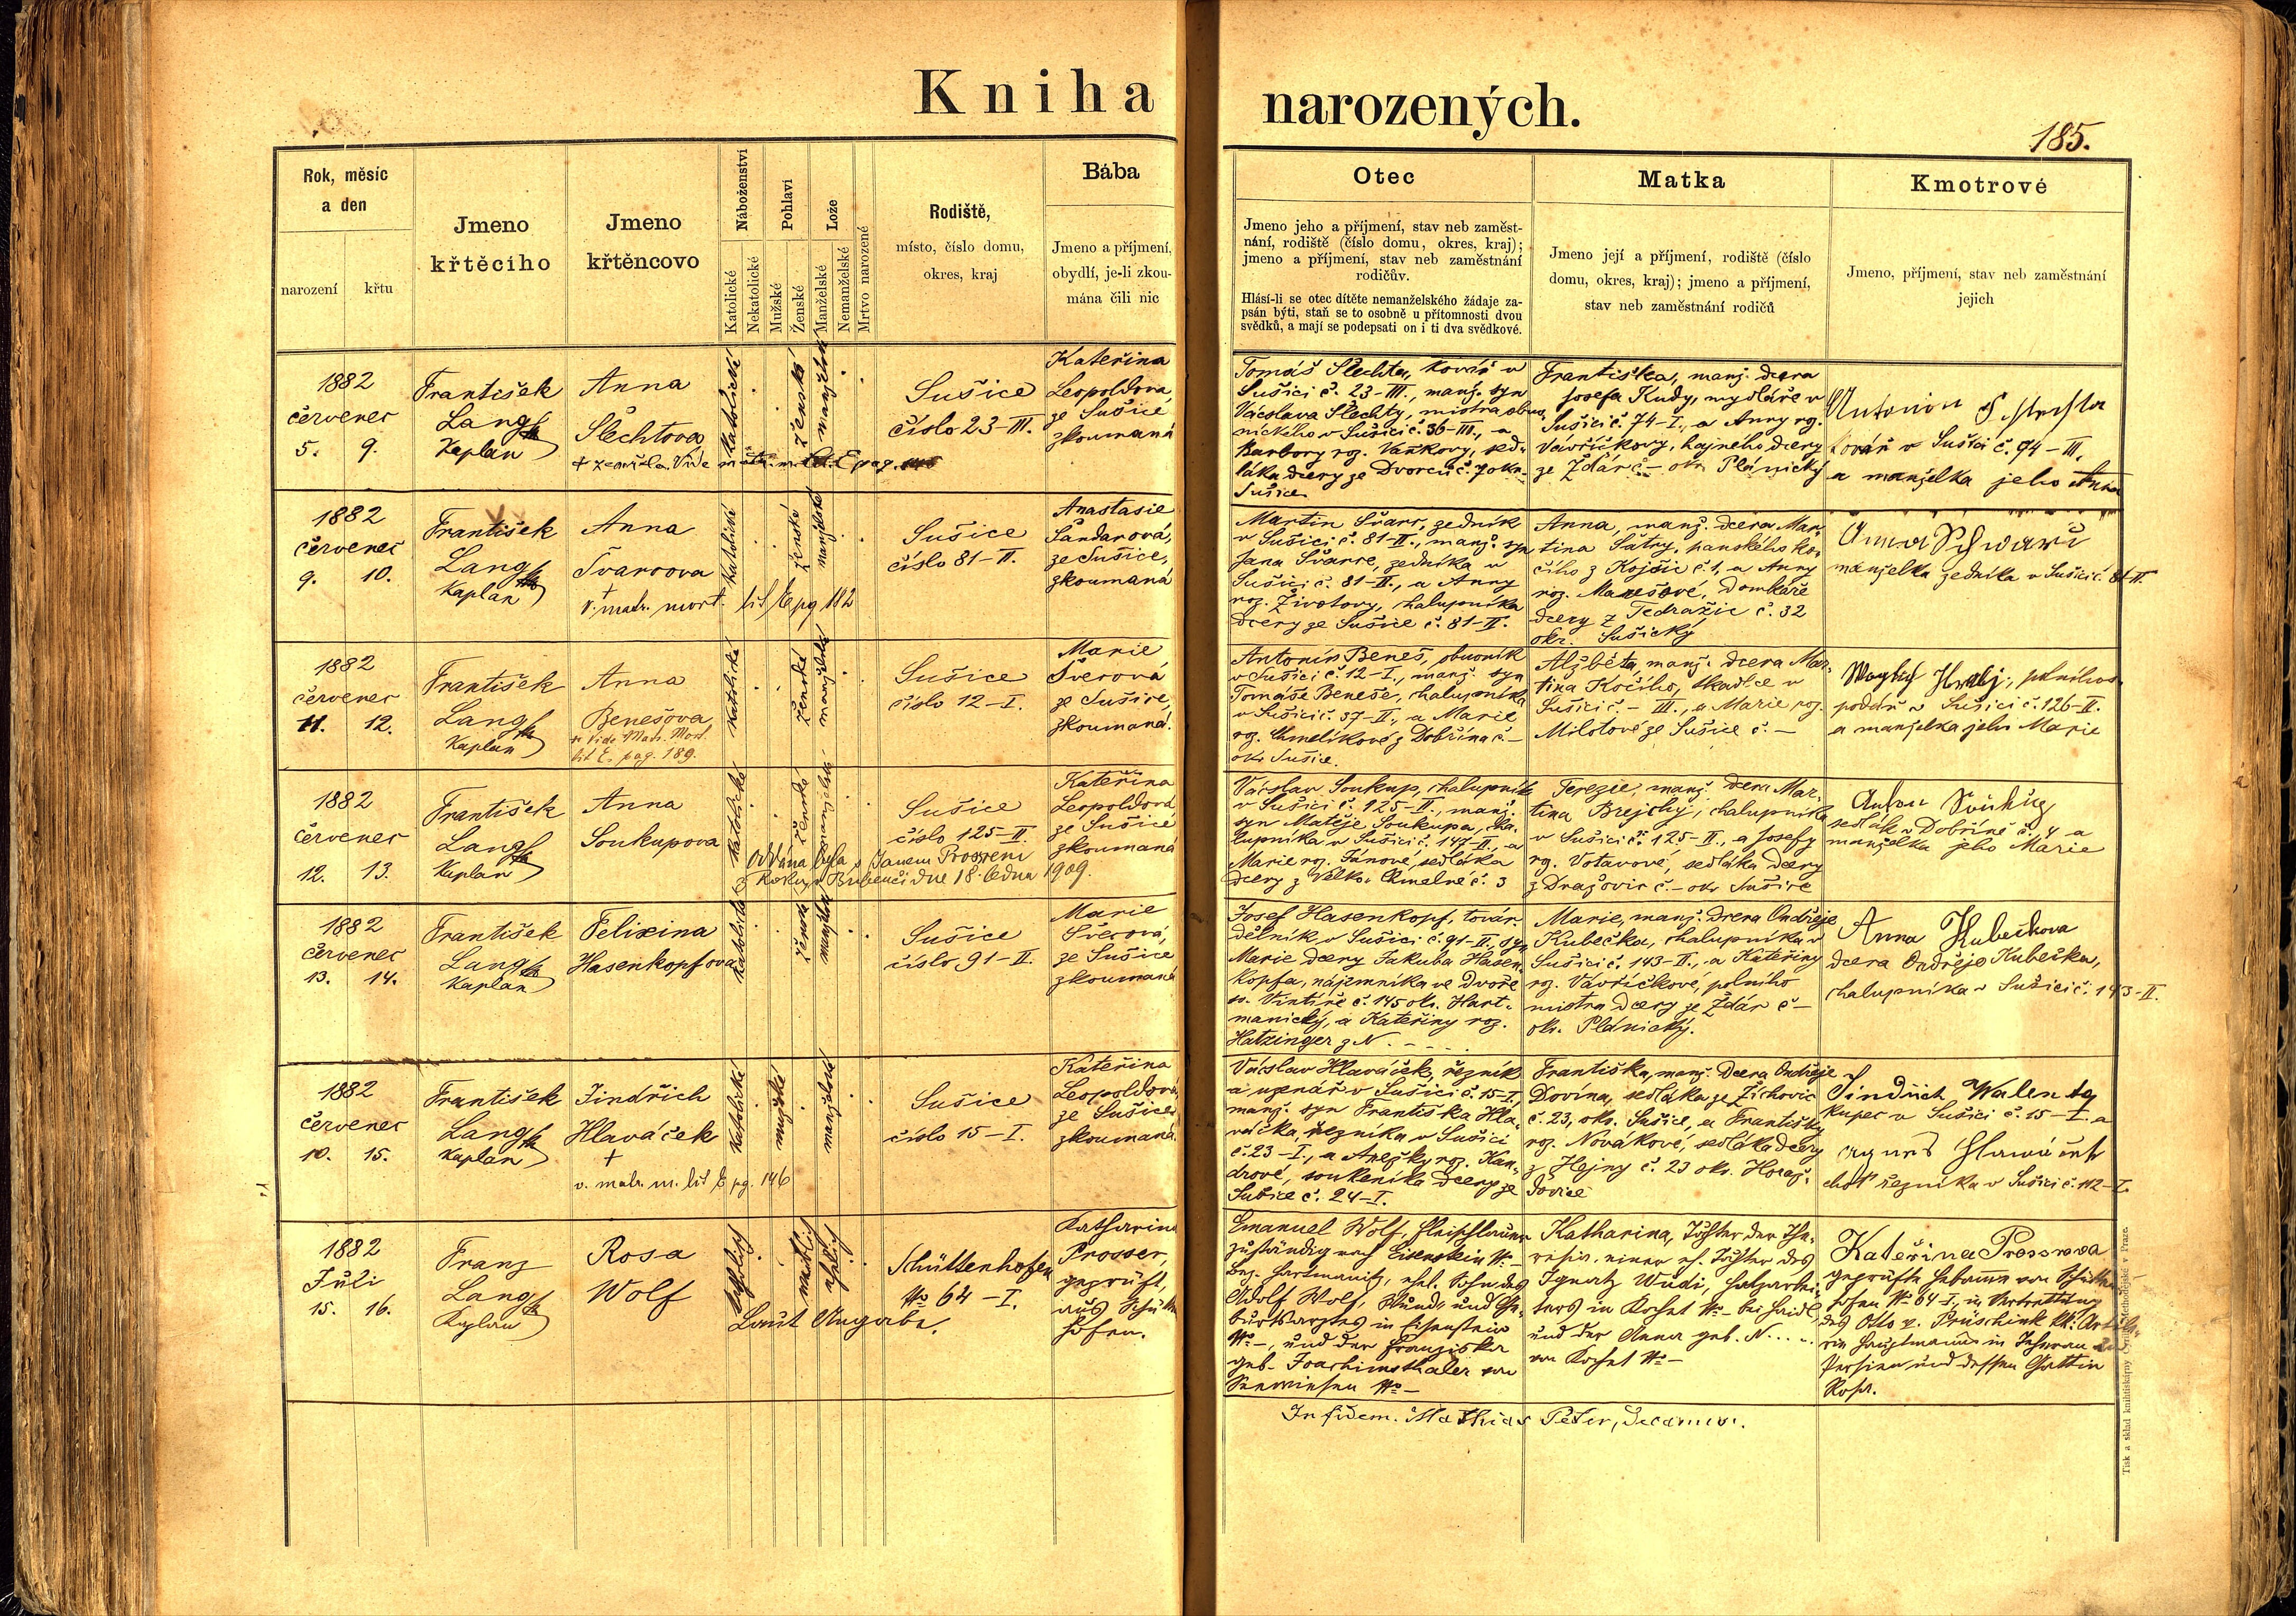 Kniha narozených.
185.
Rok, měsíc
a den
narození
křtu
Jmeno
křtěcího
Jmeno
křtěncovo
Náboženství
Katolické
Nekatolické
Pohlaví
Mužské
Ženské
Lože
Manželské
Nemanželské
Mrtvo narozené
Rodiště,
místo, číslo domu,
okres, kraj
Bába
Jmeno a příjmení,
obydlí, je-li zkou-
mána čili nic
Otec
Jmeno jeho a příjmení, stav neb zaměst-
nání, rodiště (číslo domu, okres, kraj);
jmeno a příjmení, stav neb zaměstnání
rodičův.
Hlásí-li se otec dítěte nemanželského žádaje za-
psán býti, staň se to osobně u přítomnosti dvou
svědků, a mají se podepsati on i ti dva svědkové.
Matka
Jmeno její a příjmení, rodiště (číslo
domu, okres, kraj); jmeno a příjmení,
stav neb zaměstnání rodičů
Kmotrové
Jmeno, příjmení, stav neb zaměstnání
jejich
1882
červenec
5. 9.
František
Lang
Kaplan
Anna
Šlechtova
+ zemřela. Vide
katolické
ženské
manželské
Sušice
číslo 23-III.
Kateřina
Leopoldova,
ze Sušice
zkoumaná
Tomáš Šlechta, kovář v
Sušici č. 23-III., manž. syn
Václava Šlechty, mistra obuv-
nického v Sušici č. 36-III., a
Barbory roz. Vaňkovy, sed-
láka dcery ze Dvorců č. 7 okr.
Sušice
Františka, manž. dcera
Josefa Kudy, mydláře v
Sušici č. 74-I., a Anny roz.
Vavřičkovy, hajného dcery
ze Žďár č - okr. Plánický
kovář v Sušici č. 94-III.
a manželka jeho Anna
1882
červenec
9. 10.
František
Lang
Kaplan
Anna
Švarcova
+
v. matr. mort. lit E pg 182
katolické
ženské
manželské
Sušice
číslo 81-II.
Anastasie
Šandarová,
ze Sušice,
zkoumaná
Martin Švarc, zedník
v Sušici č. 81-II., manž. syn
Jana Švarce, zedníka v
Sušici č. 81-II., a Anny
roz. Životovy, chalupníka
dcery ze Sušice č. 81-II.
Anna, manž. dcera Mar-
tina Šatry, panského ko-
čího z Kojšic č. 1, a Anny
roz. Marešové, domkáře
dcery z Tedražic č. 32
okr. Sušický
Anna Schwarc
manželka zedníka v Sušici č. 81-II.
1882
červenec
11. 12.
František
Lang
Kaplan
Anna
Benešova
vide Matr. Mort.
lit E. pag. 189.
katolické
ženské
manželské
Sušice
číslo 12-I.
Marie
Šverová
ze Sušice,
zkoumaná.
Antonín Beneš, obuvník
v Sušici č. 12-I., manž. syn
Tomáše Beneše, chalupníka
v Sušici č. 37-II., a Marie
roz. Chmelíkové z Dobřína č -
okr. Sušice.
Alžběta, manž. dcera Mar-
tina Kočího, tkadlce v
Sušici č. - III., a Marie roz.
Milotové ze Sušice č. -
podář v Sušici č. 126-II.
a manželka jeho Marie
1882
červenec
12. 13.
František
Lang
Kaplan
Anna
Soukupova
katolické
ženské
manželské
Oddána byla s Janem
dne 18. ledna 1909.
Sušice
číslo 125-II.
Kateřina
Leopoldová
ze Sušice
zkoumaná
Václav Soukup, chalupník
v Sušici č. 125-II., manž.
syn Matěje Soukupa, cha-
lupníka v Sušici č. 147-II., a
Marie roz. Janové, sedláka
dcery z Velko. Chmelné č. 3
Terezie, manž. dcera Mar-
tina Brejchy, chalupníka
v Sušici č. 125-II., a Josefy
roz. Votavové, sedláka dcery
z Dražovic č. - okr. Sušice
sedlák v Dobříně č. 4 a
manželka jeho Marie
1882
červenec
13. 14.
František
Lang
Kaplan
Felixina
Hasenkopfova
katolické
ženské
manželské
Sušice
číslo 91-II.
Marie
Šverová,
ze Sušice
zkoumaná
Josef Hasenkopf, továr.
dělník v Sušici č. 91-II., syn
Marie dcery Jakuba Hasen-
kopfa, nájemníka ve Dvoře
sv. Vintíře č. 145 okr. Hart-
manický, a Kateřiny roz.
Hatzinger z N. - - -
Marie, manž. dcera Ondřeje
Kubečka, chalupníka v
Sušici č. 143-II., a Kateřiny
roz. Vavřičkové, polního
mistra dcery ze Žďár č -
okr. Plánický.
Anna Kubečkova
dcera Ondřeje Kubečka,
chalupníka v Sušici č. 143-II.
1882
červenec
10. 15.
František
Lang
Kaplan
Jindřich
Hlaváček
+
v. matr. m. lit E pg. 146
katolické
mužské
manželské
Sušice
číslo 15-I.
Kateřina
Leopoldová
ze Sušice
zkoumaná.
Václav Hlaváček, řezník
a uzenář v Sušici č. 15-I.,
manž. syn Františka Hla-
váčka, řezníka v Sušici
č. 23-I., a Anežky roz. Kan-
drové, soukeníka dcery ze
Sušice č. 24-I.
Františka, manž. dcera Ondřeje
Dovína, sedláka ze Žichovic
č. 23, okr. Sušice, a Františky
roz. Novákové, sedláka dcery
z Hejny č. 23 okr. Horaž-
dovice
Jindřich Walenta
kupec v Sušici č. 15-I. a
choť řezníka v Sušici č. 112-I.
1882
Juli
15. 16.
Franz
Lang
Kaplan
Rosa
Wolf
katholisch
weiblich
ehelich
Laut Angabe.
Schüttenhofen
No 64-I.
Katharina
Prosser,
geprüft,
aus Schütten-
hofen.
Emanuel Wolf, Fleischhauer
zuständig nach Eisenstein No -
Bez. Hartmanitz, ehel. Sohn des
Adolf Wolf, Wund- und Ge-
burtsarztes in Eisenstein
No -, und der Franziska
geb. Joachimsthaler von
No -
Katharina, Tochter der The-
resia, einer eh. Tochter des
Ignatz Wudi, Holzarbei-
ters in Kochet No - bei Haidl,
und der Anna geb. N. . . . .
von Kochet No -
Kateřina Prosrova
geprüfte Hebamme von Schütten-
hofen No 64-I., in Vertretung
des Otto v. Prüschink kk. Artille-
rie Hauptmanns in Teheran in
Persien und dessen Gattin
Rosa.
In fidem. Mathias Peter, Decanus.
Tisk a sklad knihtiskárny Cyrillo-Methodějské v Praze.